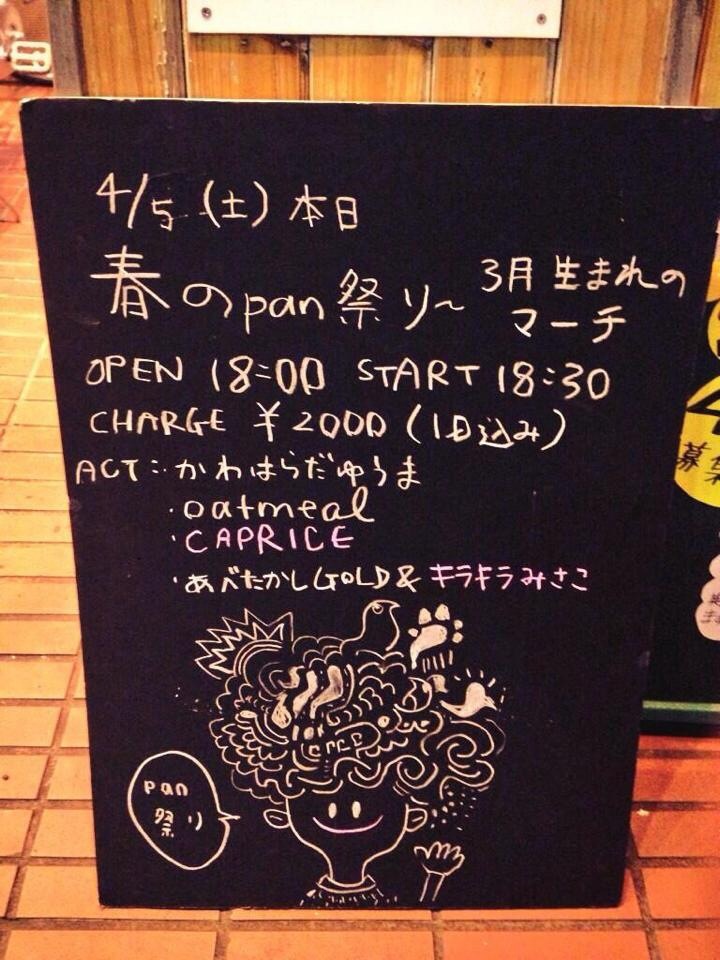 4/5 (土) 本日
春のpan祭り〜 3月生まれの
マーチ
OPEN 18:00 START 18:30
CHARGE ¥2000 (1D込み)
ACT: かわはらだゆうま
・oatmeal
・CAPRICE
・あべたかしGOLD& キラキラみさこ
pan
祭り
募集